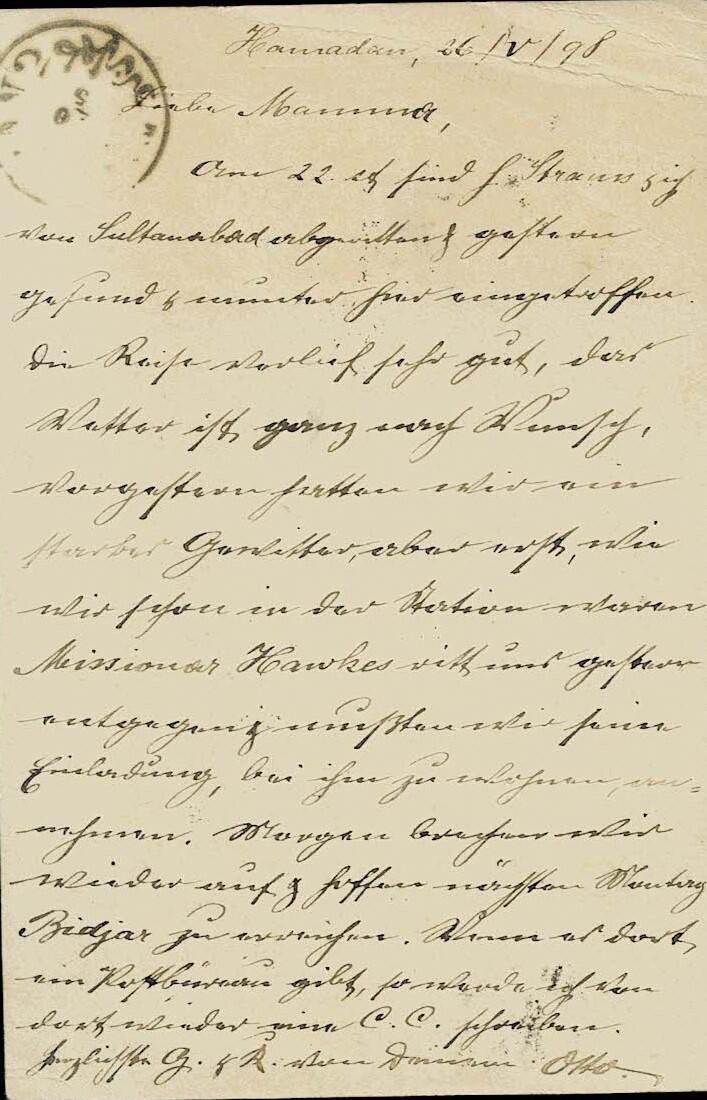 Hamadan, 26/V/98
Liebe Mamma,
Am 22. ct sind H Strauss & ich
von Sultanabad abgeritten & gestern
gesund & munter hier eingetroffen.
Die Reise verlief sehr gut, das
Wetter ist ganz nach Wunsch,
vorgestern hatten wir ein
starkes Gewitter, aber erst, wie
wir schon in der Station waren
Missionar Hawkes ritt uns gestern
entgegen & mußten wir seine
Einladung, bei ihm zu wohnen, an=
nehmen. Morgen brechen wir
wieder auf & hoffen nächsten Montag
Bidjar zu erreichen. Wenn es dort
ein Postbüreau gibt, so werde ich von
dort wieder eine C. C. schreiben.
herzlichste G. & K. von Deinem Otto.